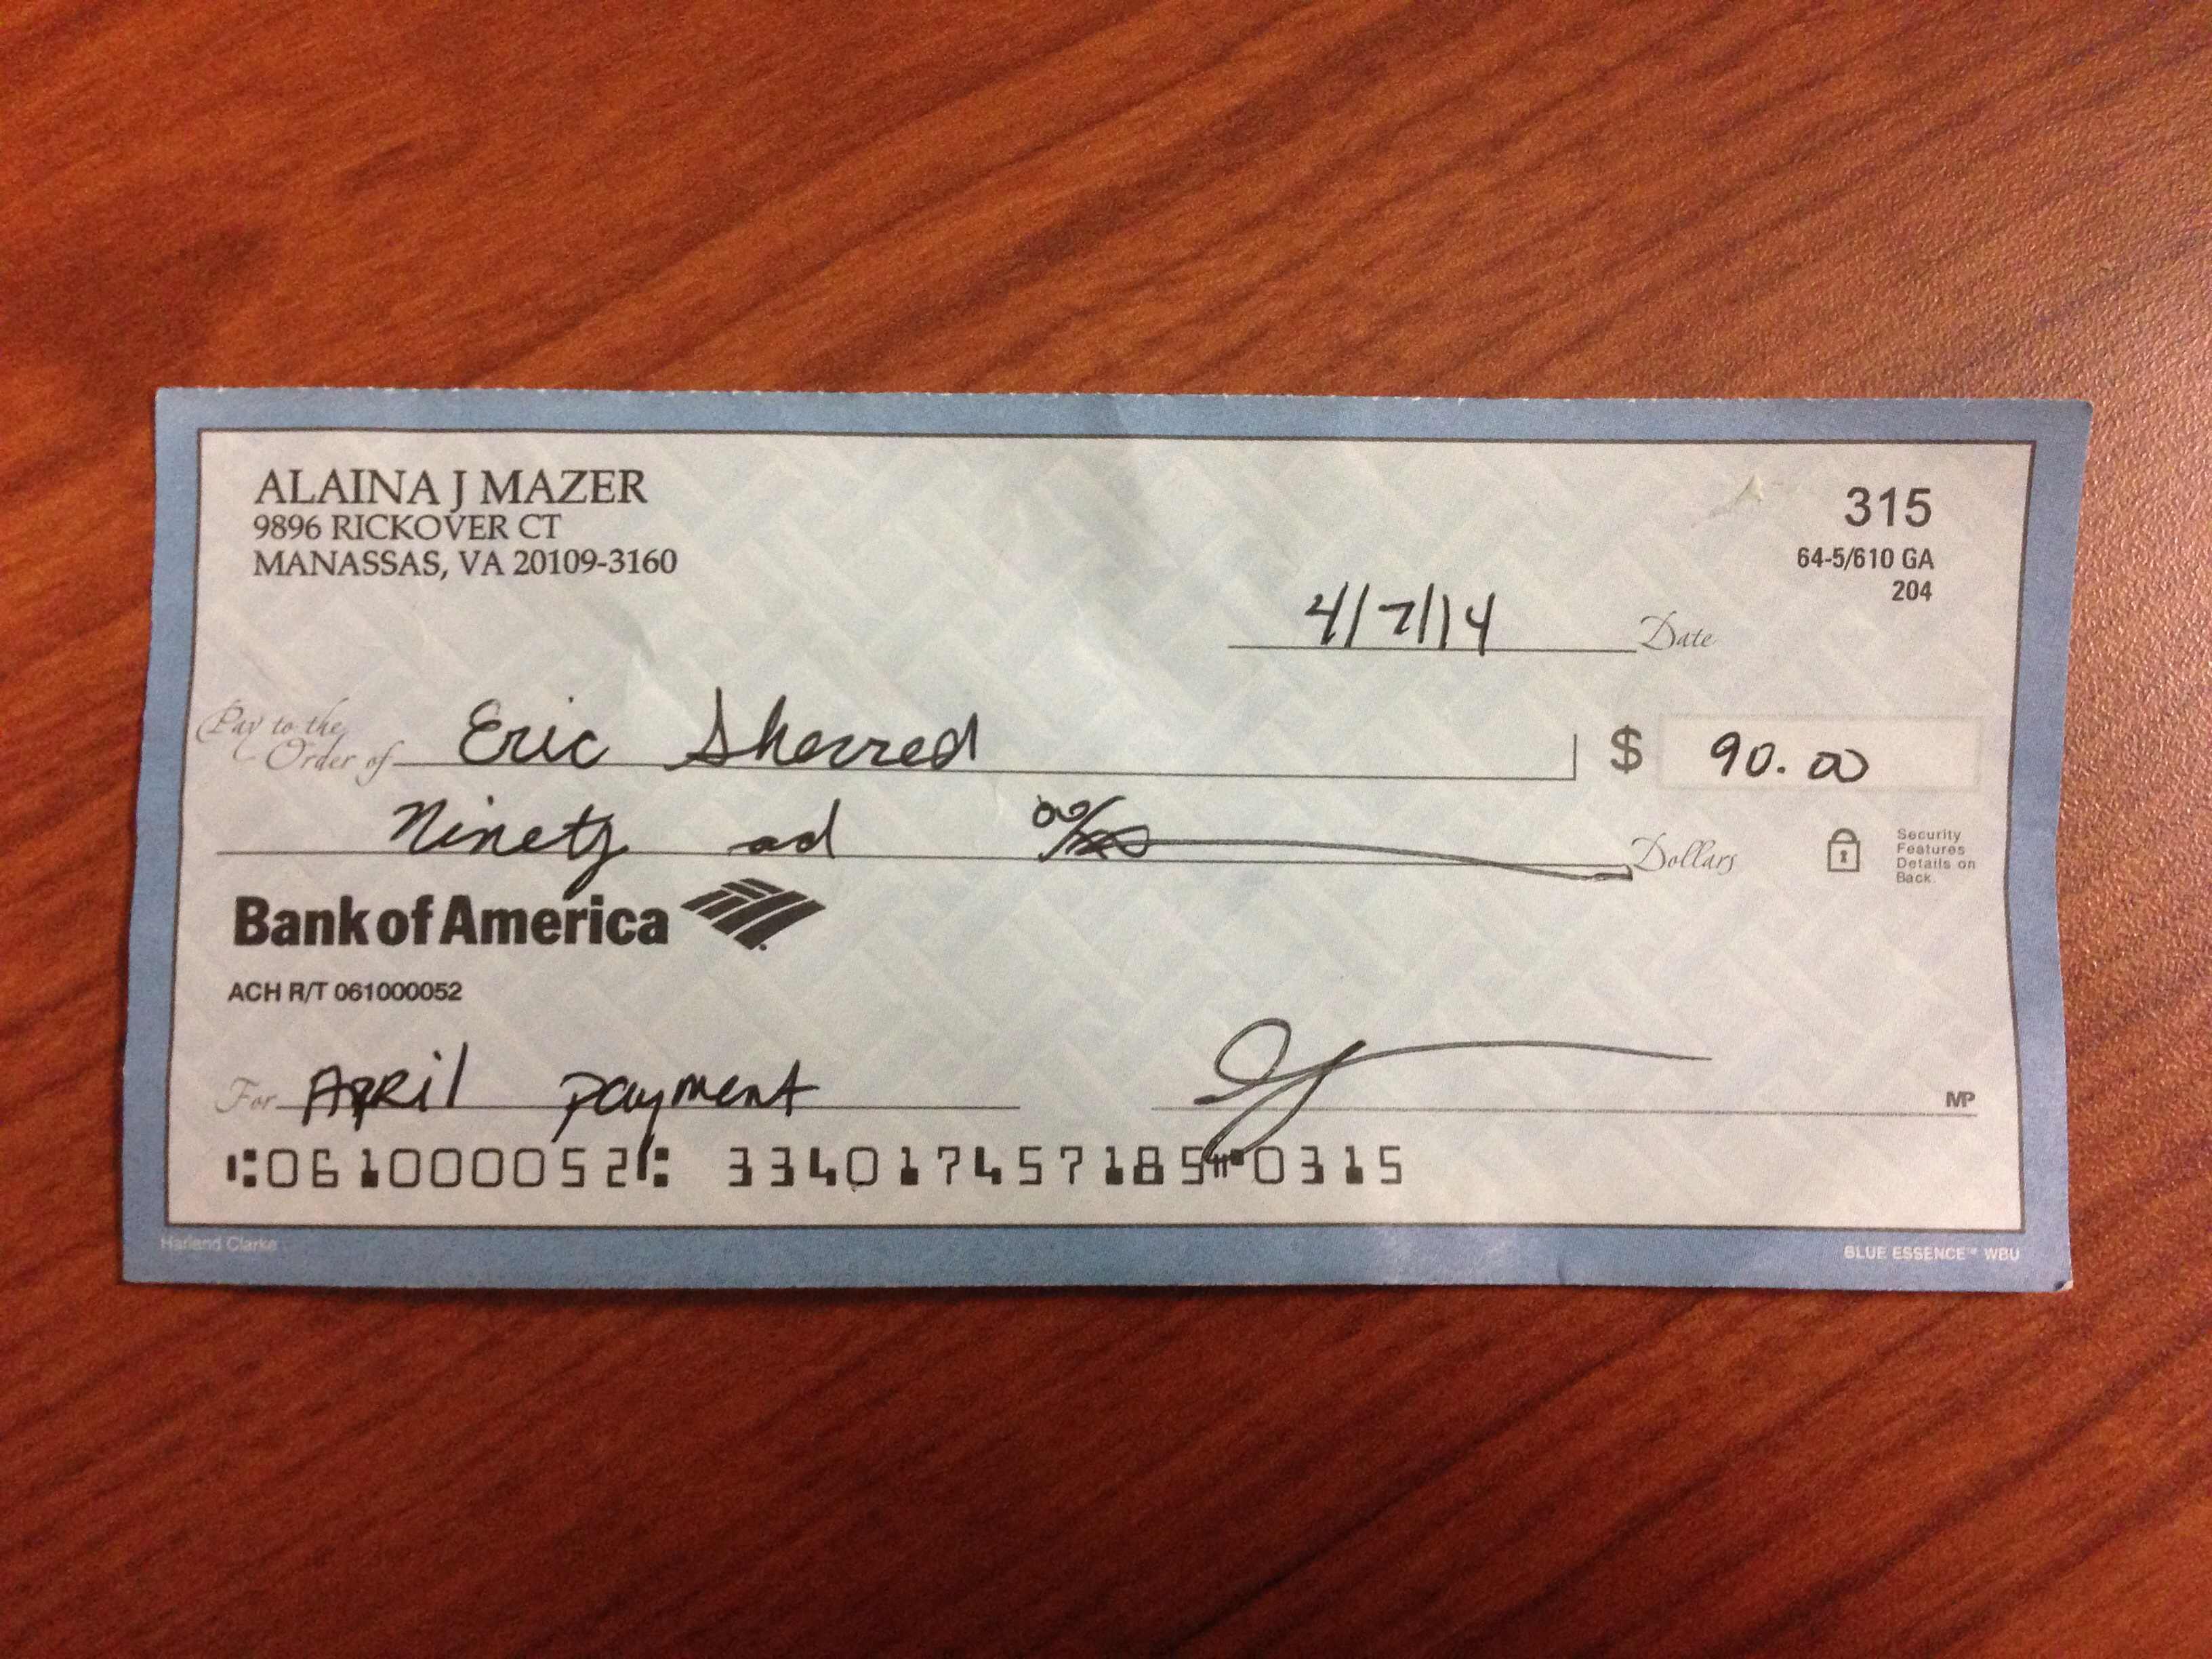 ALAINA J MAZER
9896 RICKOVER CT
MANASSAS, VA 20109-3160
315
64-5/610 GA
204
4/7/14 Date
Pay to the
Order of Eric Sherred $ 90.00
Ninety ad 00/ Dollars
Security
Features
Details on
Back.
Bank of America
ACH R/T 061000052
For April payment
MP
⑆061000052⑆ 334017457185⑈0315
Harland Clarke
BLUE ESSENCE™ WBU